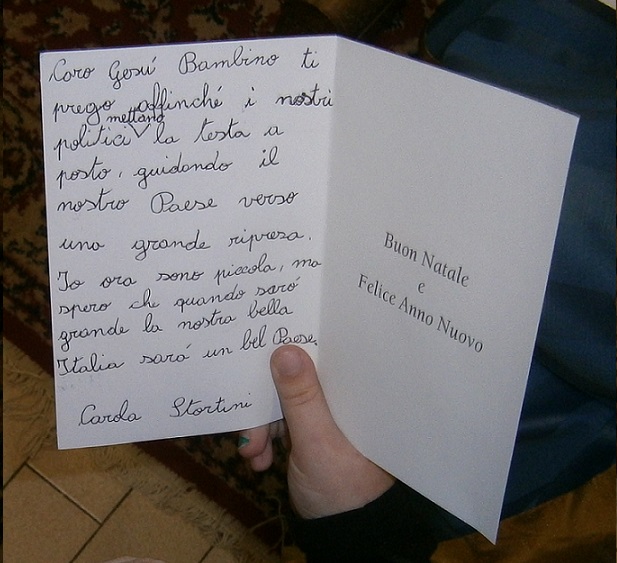 Caro Gesú Bambino ti
prego affinché i nostri
politici mettano la testa a
posto, guidando il
nostro Paese verso
una grande ripresa.
Io ora sono piccola, ma
spero che quando saró
grande la nostra bella
Italia saró un bel Paese.
Carola Stortini
Buon Natale
e
Felice Anno Nuovo